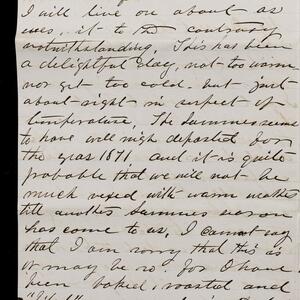 I will live on about as
ever, it to the contrary
notwithstanding. This has been
a delightful day, not too warm
nor yet too cold. but just
about right in respect of
temperature. The Summer seems
to have well nigh departed for
the year 1871, and it is quite
probable that we will not be
much vexed with warm weather
till another Summer
has come to us. I cannot say
that I am sorry that this is
or may be so. for I have
been baked, roasted and